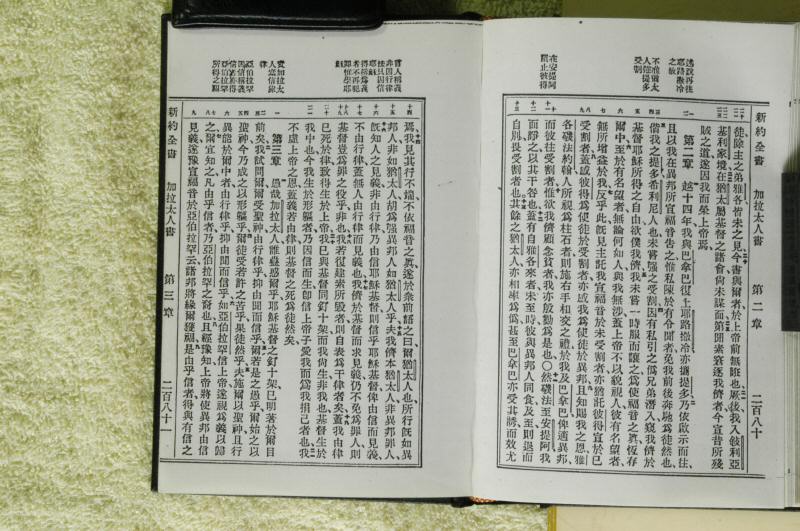 述說再往
耶路撒冷
之故
不准爾太
人強提多
受割
在安提阿
阻止彼得
新約全書 加拉太人書 第二章 二百八十
徒除主之弟雅各皆未之見今書與爾者於上帝前無誑也厥後我入叙利亞
基利家境在猶太屬基督之諸會尚未謀面第聞素窘逐我儕者今宣昔所殘
賊之道遂因我而榮上帝焉
第二章 越十四年我與巴拿巴復上耶路撒冷亦攜提多乃依啟示而往
且以我在異邦所宣福音告之惟私陳於有令聞者免我前後奔馳為徒然也
偕我之提多希利尼人也未嘗强之受割因有私引之僞兄弟潛入窺我儕於
基督耶穌所得之自由欲僕我儕我未嘗一時服而讓之為使福音之眞恆存
爾中至於有名望者無論何如人與我無涉蓋上帝不以貌視人彼有名望者
無所增益於我反乎此旣見主託我宣福音於未受割者亦猶託彼得宣於已
受割者蓋感彼得為使徒於受割者亦感我為使徒於異邦且知賜我之恩雅
各磯法約翰人所視為柱石者則施右手相交之禮於我及巴拿巴俾適異邦
而彼往受割者惟欲我儕顧念貧者我亦殷勤為是也○然磯法至安提阿我
面諍之以其干咎也蓋有自雅各來者未至時彼與異邦人同食及至則退而
自別畏受割者也其餘之猶太人亦相率為僞甚至巴拿巴亦受其誘而效尤
言人稱義
非因行律
法只因信
耶穌
得稱為義
者不再犯
罪
卽恆學耶
穌
責加拉太
人忘信歸
律
亞伯拉罕
因信稱義
信者亦得
亞伯拉罕
所得之福
焉我見其行不端不依福音之眞遂於衆前語之曰爾猶太人也所行旣如異
邦人非如猶太人胡為强異邦人如猶太人乎夫我儕本猶太人非異邦罪人
旣知人之見義非由行律乃由信耶穌基督則信乎耶穌基督俾由信而見義
不由行律蓋無人由行律而見義也我儕於基督而求見義仍不免為罪人則
基督豈為罪之役乎非也我若復建素所毀者則自表為干律者矣蓋我由律
已死於律致得生於上帝我已與基督同釘十架而我尚生非我也基督生於
我中也今我生於形軀者乃因信而生卽信上帝子愛我而為我捐己者也我
不虛上帝之恩蓋義若由律則基督之死為徒然矣
第三章 愚哉加拉太人誰蠱惑爾乎耶穌基督之釘十架已明著於爾目
前矣我試問爾爾受聖神由行律乎抑由聞而信乎爾若是之愚乎爾始之以
聖神今乃成之以形軀乎爾徒受若許之苦乎果徒然乎夫施爾以聖神且行
異能於爾中者由行律乎抑由聞而信乎如亞伯拉罕信上帝遂視為義以歸
之爾宜知凡由乎信者乃亞伯拉罕之裔也且經豫知上帝將使異邦由信
見義遂豫宣福音於亞伯拉罕云諸邦將緣爾獲福是由乎信者得與有信之
新約全書 加拉太人書 第三章 二百八十一